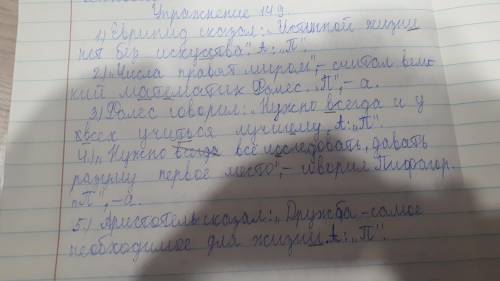 Упражнение 149
1) Еврипид сказал: „Истинной жизни
нет без искусства". А: „П".
2) „Числа правят миром", – считал вели-
кий математик Фалес. „П", – а.
3) Фалес говорил: „Нужно всегда и у
всех учиться лучшему. А: „П".
4.) „Нужно всё исследовать, давать
разуму первое место", – говорил Пифагор.
„П", – а.
5.) Аристотель сказал: „Дружба – самое
необходимое для жизни. А: „П".